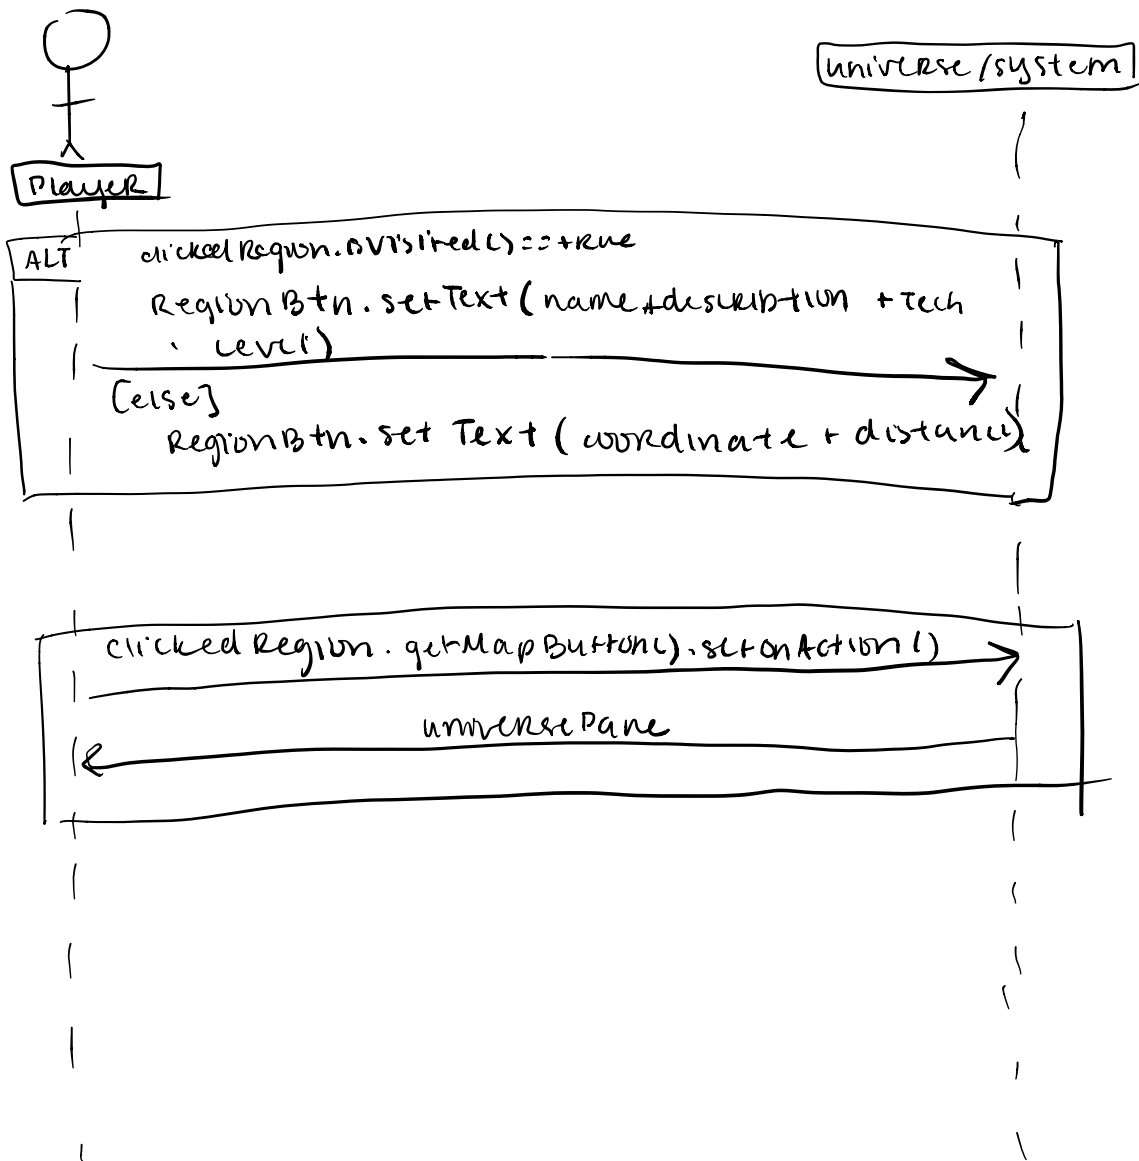 universe/system
Player
ALT
clickedRegion.isVisited()==true
RegionBtn.setText(name+description + Tech
Level)
[else]
RegionBtn.set Text (coordinate + distance)
clickedRegion.getMapButton().setOnAction()
universePane